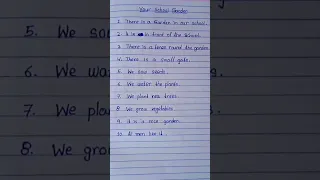 Your School Garden
1. There is a Garden in our school.
2. It is in front of the school.
3. There is a fence round the garden.
4. There is a small gate.
5. We sow seeds.
6. We water the plants.
7. We plant new trees.
8. We grow vegetables.
9. It is is rose garden.
10. All men like it.
5. We so
6. We wa
7. We plan
8. We gro